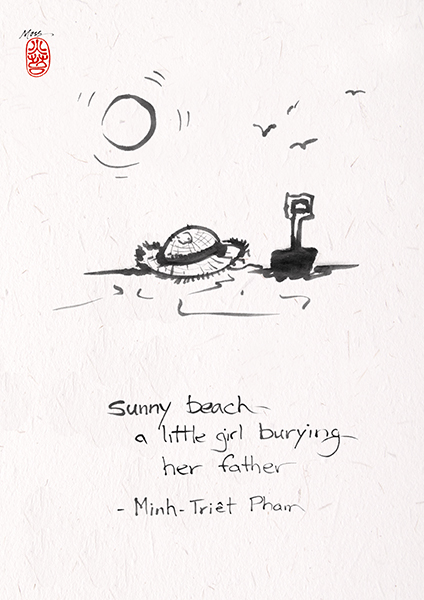 Moss
sunny beach
a little girl burying
her father
- Minh-Triêt Pham